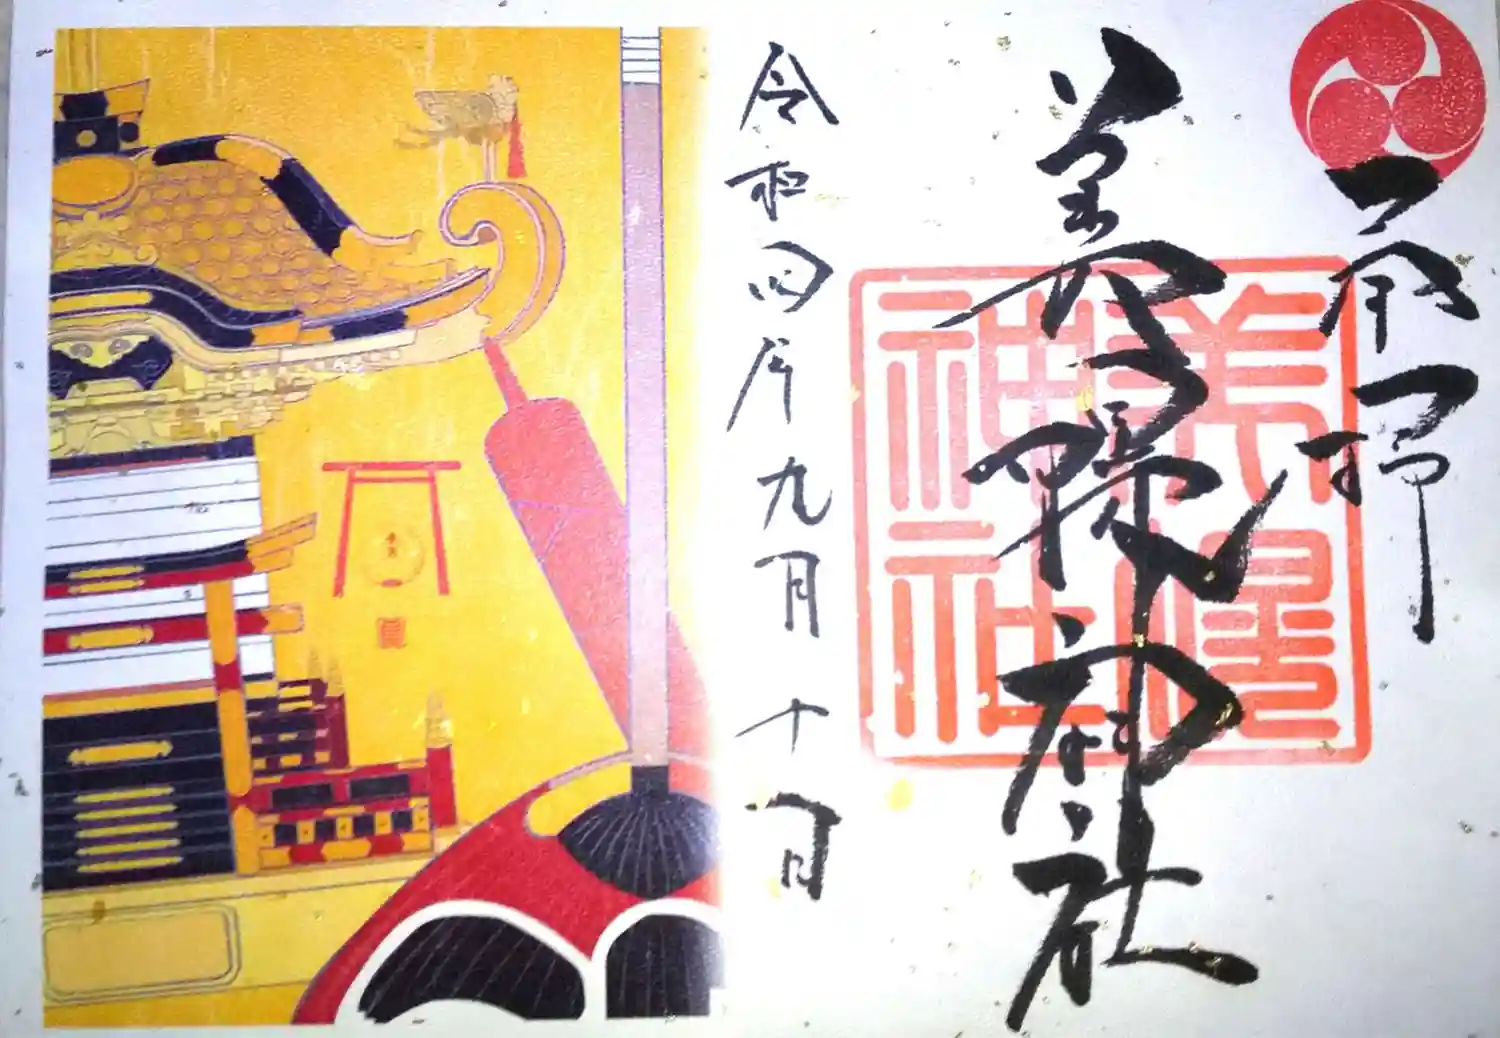 奉拝
美幌神社
美幌
神社
令和四年九月十一日